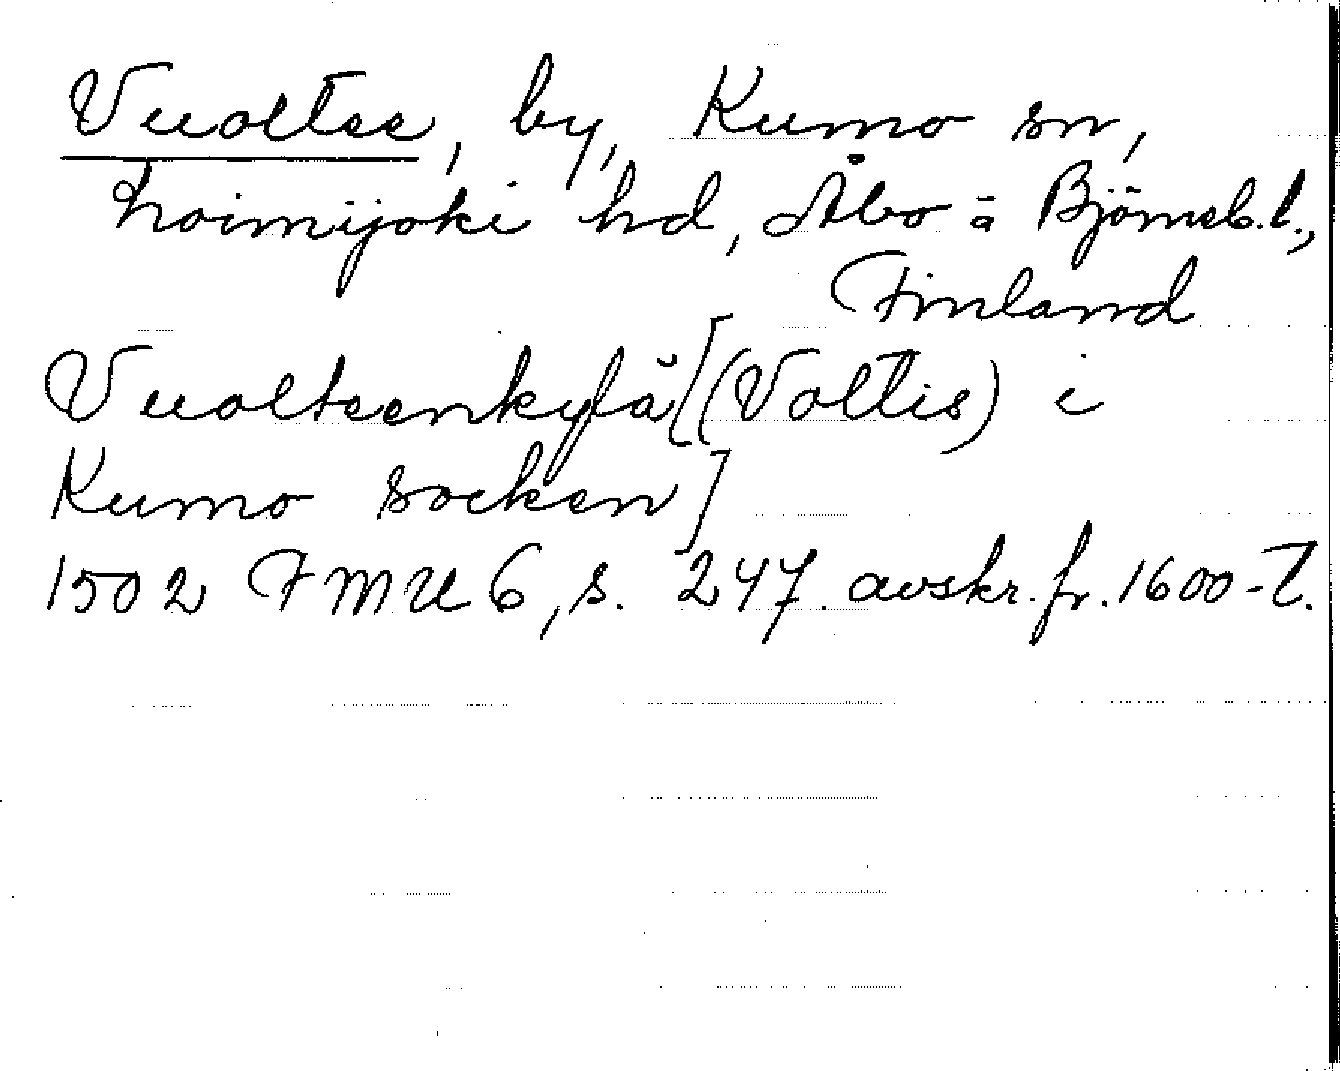 Vuoltee, by, Kumo sn,
Loimijoki hd, Åbo ä Björneb. l.,
Finland
Vuolteenkylä [(Voltis) i
Kumo socken]
1502 FMU 6, s. 247. avskr. fr. 1600-t.